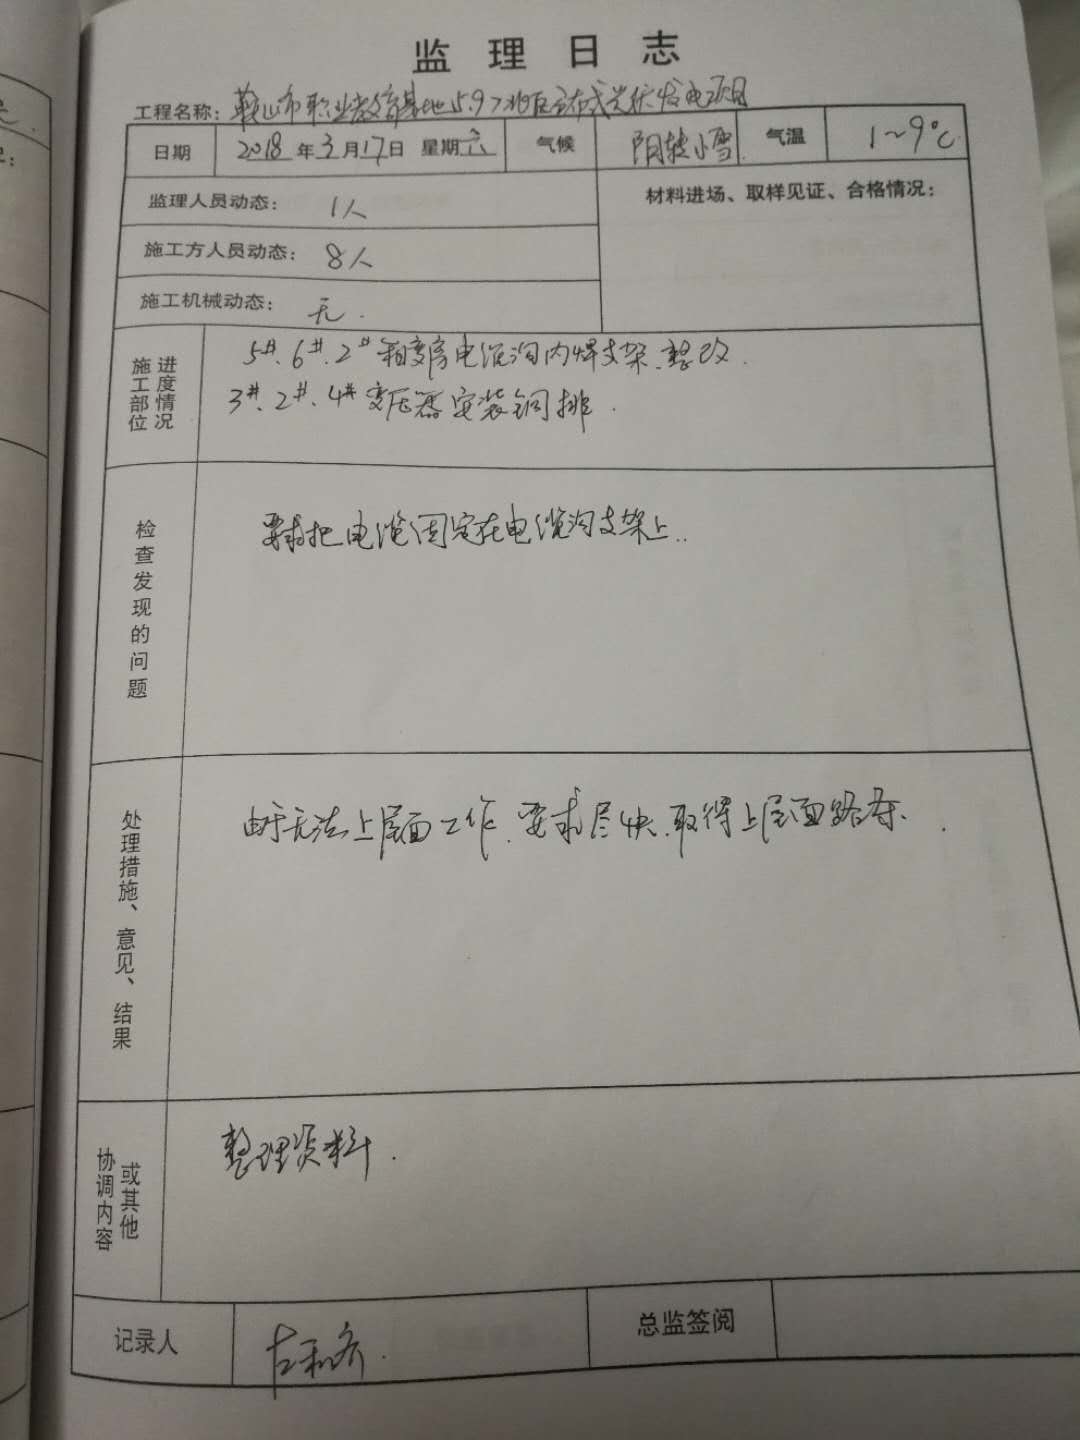 监 理 日 志
工程名称：鞍山市职业教育基地5.97兆瓦分布式光伏发电项目
日期 2018年3月17日 星期六 气候 阴转小雪 气温 1～9℃
监理人员动态： 1人 材料进场、取样见证、合格情况：
施工方人员动态： 8人
施工机械动态： 无.
施工部位 进度情况
5#.6#.2#箱变房电缆沟内焊支架.整改.
3#.2#.4#变压器安装铜排.
检查发现的问题
要求把电缆固定在电缆沟支架上..
处理措施、意见、结果
由于无法上屋面工作.要求尽快.取得上屋面路条.
协调内容 或其他
整理资料.
记录人 总监签阅